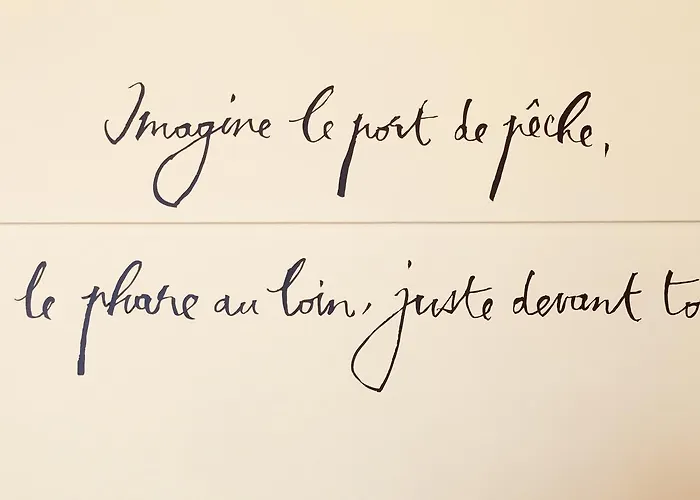 Imagine le port de pêche,
le phare au loin, juste devant to